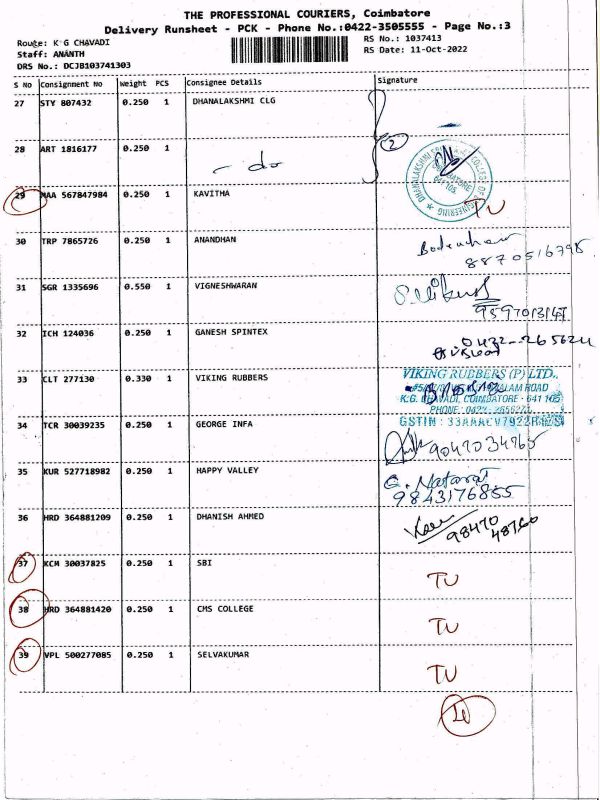 THE PROFESSIONAL COURIERS, Coimbatore
Delivery Runsheet - PCK - Phone No.:0422-3505555 - Page No.:3
Route: K G CHAVADI
Staff: ANANTH
DRS No.: DCJB103741303
RS No.: 1037413
RS Date: 11-Oct-2022
S No Consignment No Weight PCS Consignee Details Signature
27 STY 807432 0.250 1 DHANALAKSHMI CLG
28 ART 1816177 0.250 1
- do
2
29 MAA 567847984 0.250 1 KAVITHA TU
30 TRP 7865726 0.250 1 ANANDHAN
8870516795
31 SGR 1335696 0.550 1 VIGNESHWARAN
32 ICH 124036 0.250 1 GANESH SPINTEX
33 CLT 277130 0.330 1 VIKING RUBBERS
VIKING RUBBERS (P) LTD.,
K.G. CHAVADI, COIMBATORE - 641 105
34 TCR 30039235 0.250 1 GEORGE INFA
9047034765
35 KUR 527718982 0.250 1 HAPPY VALLEY
G. Nataraj
9843176855
36 HRD 364881209 0.250 1 DHANISH AHMED
98470
48760
37 KCM 30037825 0.250 1 SBI TU
38 HRD 364881420 0.250 1 CMS COLLEGE TU
39 VPL 500277085 0.250 1 SELVAKUMAR TU